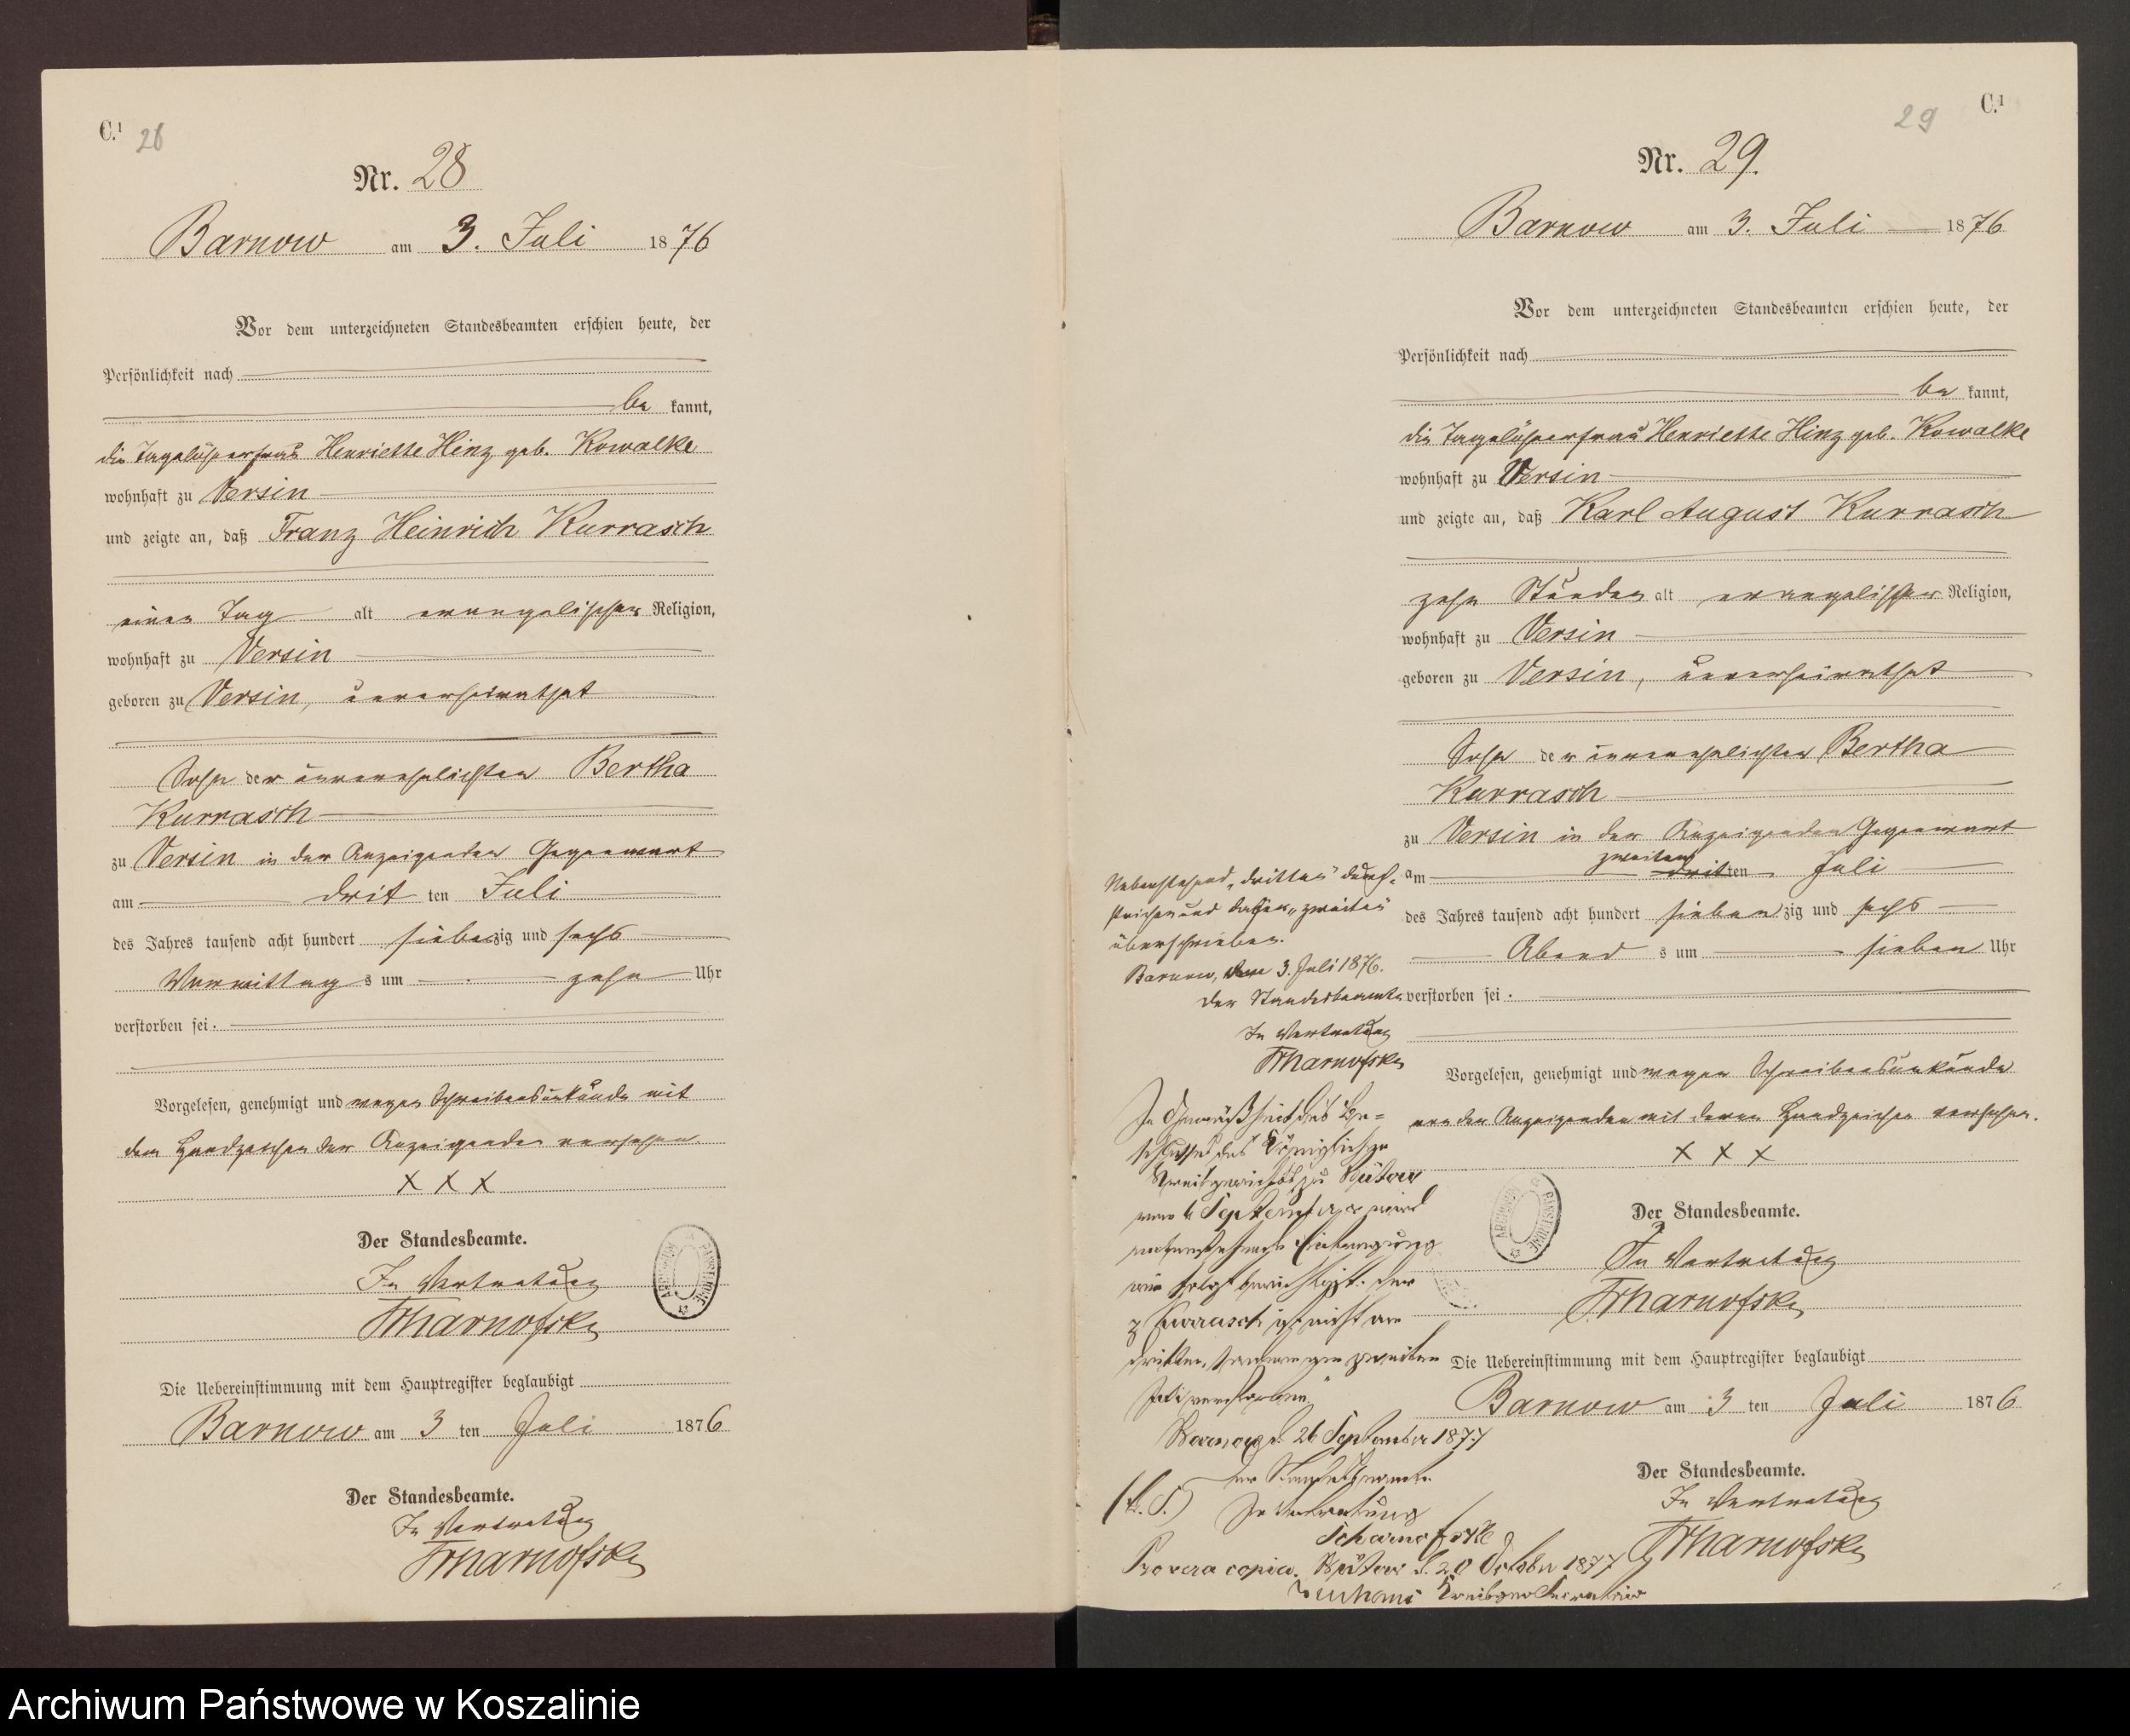 C.¹ 28
Nr. 28
Barnow am 3. Juli 1876
Vor dem unterzeichneten Standesbeamten erschien heute, der
Persönlichkeit nach
be kannt,
die Tagelöhnerfrau Henriette Hinz geb. Kowalke
wohnhaft zu Versin
und zeigte an, daß Franz Heinrich Kurrasch
einen Tag alt evangelischer Religion,
wohnhaft zu Versin
geboren zu Versin, unverheirathet
Sohn der unverehelichten Bertha
Kurrasch
zu Versin in der Anzeigenden Gegenwart
am drit ten Juli
des Jahres tausend acht hundert siebenzig und sechs
Vormittag s um zehn Uhr
verstorben sei.
Vorgelesen, genehmigt und wegen Schreibensunkunde mit
dem Handzeichen der Anzeigenden versehen.
X X X
Der Standesbeamte.
In Vertretung
Scharnofske
Die Uebereinstimmung mit dem Hauptregister beglaubigt
Barnow am 3 ten Juli 1876
Der Standesbeamte.
In Vertretung
Scharnofske
29 C.¹
Nr. 29.
Barnow am 3. Juli 1876
Vor dem unterzeichneten Standesbeamten erschien heute, der
Persönlichkeit nach
be kannt,
die Tagelöhnerfrau Henriette Hinz geb. Kowalke
wohnhaft zu Versin
und zeigte an, daß Karl August Kurrasch
zehn Stunden alt evangelischer Religion,
wohnhaft zu Versin
geboren zu Versin, unverheirathet
Sohn der unverehelichten Bertha
Kurrasch
zu Versin in der Anzeigenden Gegenwart
zweiten
am dritten Juli
des Jahres tausend acht hundert sieben zig und sechs
Abend s um sieben Uhr
verstorben sei.
Vorgelesen, genehmigt und wegen Schreibensunkunde
von der Anzeigenden mit deren Handzeichen versehen.
X X X
Der Standesbeamte.
In Vertretung
Scharnofske
Die Uebereinstimmung mit dem Hauptregister beglaubigt
Barnow am 3 ten Juli 1876
Der Standesbeamte.
In Vertretung
Scharnofske
Nebenstehend „dritten" durch-
strichen und dafür „zweiten"
überschrieben.
Barnow, den 3. Juli 1876.
Der Standesbeamte
In Vertretung
Scharnofske
In Gemäßheit des Be=
schlusses des Königlichen
Kreisgerichts zu Bütow
vom 6 September wird
nebenstehende Eintragung
wie folgt berichtigt: der
p Kurrasch ist nicht am
dritten, sondern am zweiten
Juli verstorben.
Barnow d. 26 September 1877
Der Standesbeamte.
(L. S.) In Vertretung
Scharnofske
Pro vera copia. Bütow d. 20 October 1877
ARCHIWUM PAŃSTWOWE
Archiwum Państwowe w Koszalinie